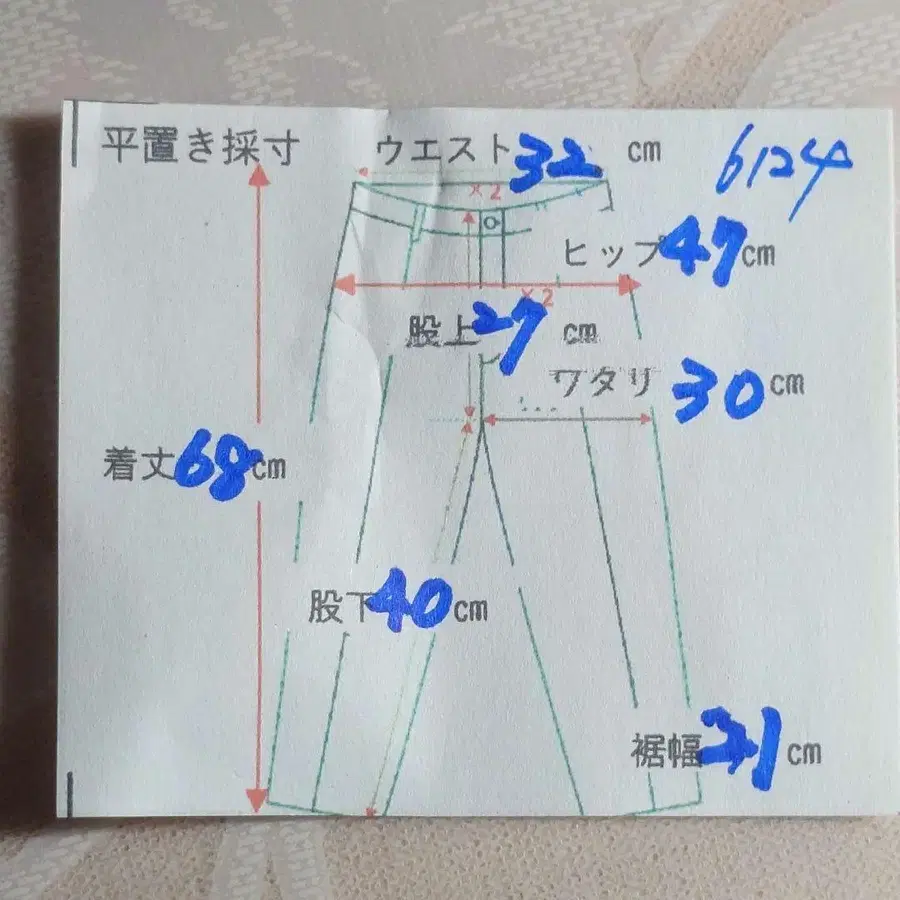 平置き採寸 ウエスト32 cm 6124
×2
ヒップ47cm
×2
股上27 cm
ワタリ 30cm
着丈68cm
股下40cm
裾幅21cm